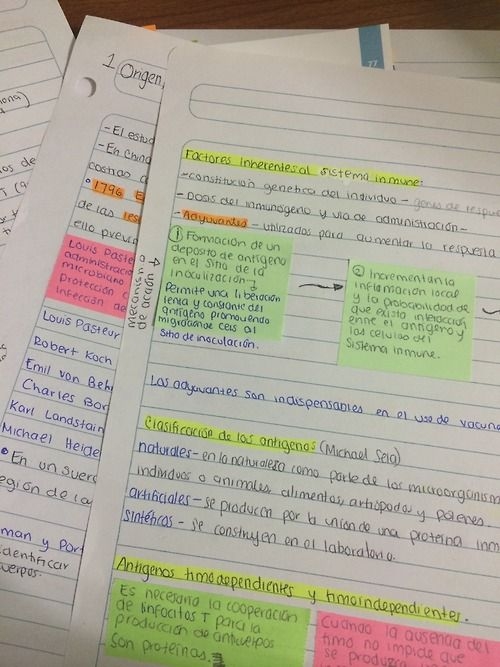 1 Origen
- El estud
- En China
costras d
• 1796 E
de las les
ello previ
Louis Paste
administrac
microbiano
Protección c
infección
Louis Pasteur
Robert Koch
Emil von Behr
Charles Bor
Karl Landstain
Michael Heide
• En un suero
egión de la
man y Port
identificar
Factores inherentes al sistema inmune:
- constitución genética del individuo - genes de respu
- Dosis del inmunógeno y vía de administración -
- Adyuvantes - utilizados para aumentar la respuesta
mecanismo
de acción
① Formación de un
deposito de antígeno
en el sitio de la
inoculización →
Permite una liberación
lenta y constante del
antígeno promoviendo
migración de cels al
sitio de inoculación.
② Incrementan la
inflamación local
y la probabilidad de
que exista interacción
entre el antígeno y
las células del
sistema inmune.
Los adyuvantes son indispensables en el uso de vacuna
Clasificación de los antígenos (Michael Sela)
naturales - en la naturaleza como parte de los microorganism
individuos o animales, alimentos, artropodos y polenes.
artificiales - se producen por la unión de una proteína inm
sintéticos - se construyen en el laboratorio.
Antígenos timodependientes y timoindependientes.
Es necesaria la cooperación
de linfocitos T para la
producción de anticuerpos
son proteínas.
Cuando la ausencia del
timo no impide que
se produzca